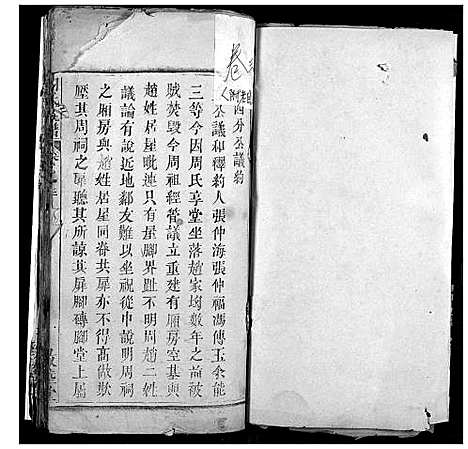 卷
四分公議約
公議和釋約人張仲海張仲福馮傳玉余能
三等今因周氏享堂坐落趙家塆數年之前被
賊焚毀今周祖經管議立重建有廂房空基與
趙姓居屋毗連只有屋腳界趾不明周趙二姓
議論有說近地鄰友難以坐視從中說明周祠
之廂房與趙姓居屋同眷共脊亦不得高傲欺
壓其周祠之屏聽其所諒其屏腳磚腳堂上屬